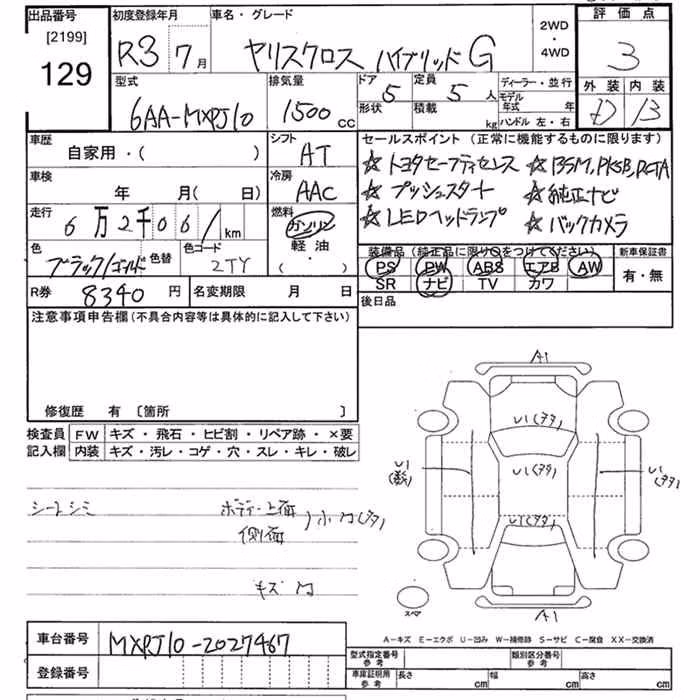 出品番号 [2199] 129
初度登録年月 R3年 7月
車名・グレード ヤリスクロス ハイブリッド G
2WD・4WD
評価点 3
外装 D 内装 B
型式 6AA-MXPJ10
排気量 1500cc
ドア 5 定員 5人
形状 積載 kg
ディーラー・並行
モデル年式 年
ハンドル 左・右
車歴 自家用・( )
シフト AT
車検 年 月(日)
冷房 AAC
走行 6万2千061km
燃料 ガソリン 軽油 ( ・ )
色 ブラック/ゴールド 色替
色コード 2TY
R券 8340円
名変期限 月 日
セールスポイント (正常に機能するものに限ります)
☆トヨタセーフティセンス ☆BSM,PKSB,RCTA
☆プッシュスタート ☆純正ナビ
☆LEDヘッドランプ ☆バックカメラ
装備品(純正品に限り○をつけてください)
PS PW ABS エアB AW
SR ナビ TV カワ
新車保証書 有・無
後日品
注意事項申告欄(不具合内容等は具体的に記入して下さい)
修復歴 有 〔箇所 〕
検査員記入欄
FW キズ・飛石・ヒビ割・リペア跡・×要
内装 キズ・汚レ・コゲ・穴・スレ・キレ・破レ
シートシミ
ボディ上面
側面
小凹(多タ)
キズ 凹
A1
U1(多タ)
U1(多タ)
U1(多数)
U1(多タ)
U1(多タ)
A1
スペア
A-キズ E-エクボ U-凹み W-補修跡 S-サビ C-腐食 XX-交換済
車台番号 MXPJ10-2027467
登録番号
型式指定番号 参考
類別区分番号 参考
車庫証明用 参考 長さ cm 幅 cm 高さ cm